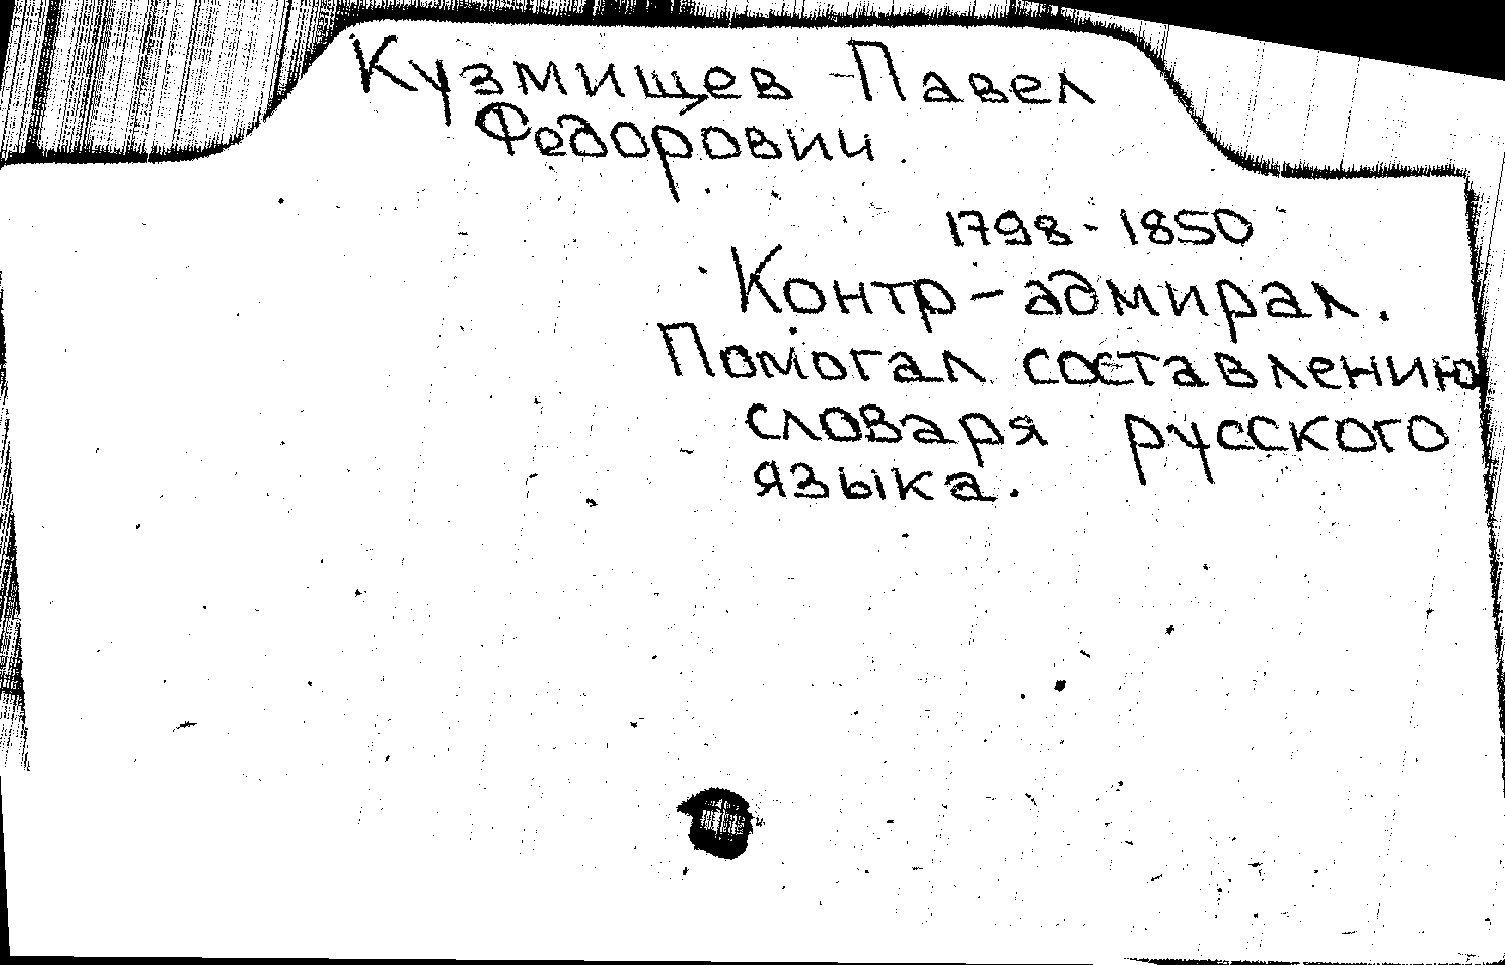 Кузмищев Павел
Федорович.
1798-1850
Контр-адмирал.
Помогал составлению
словаря русского
языка.